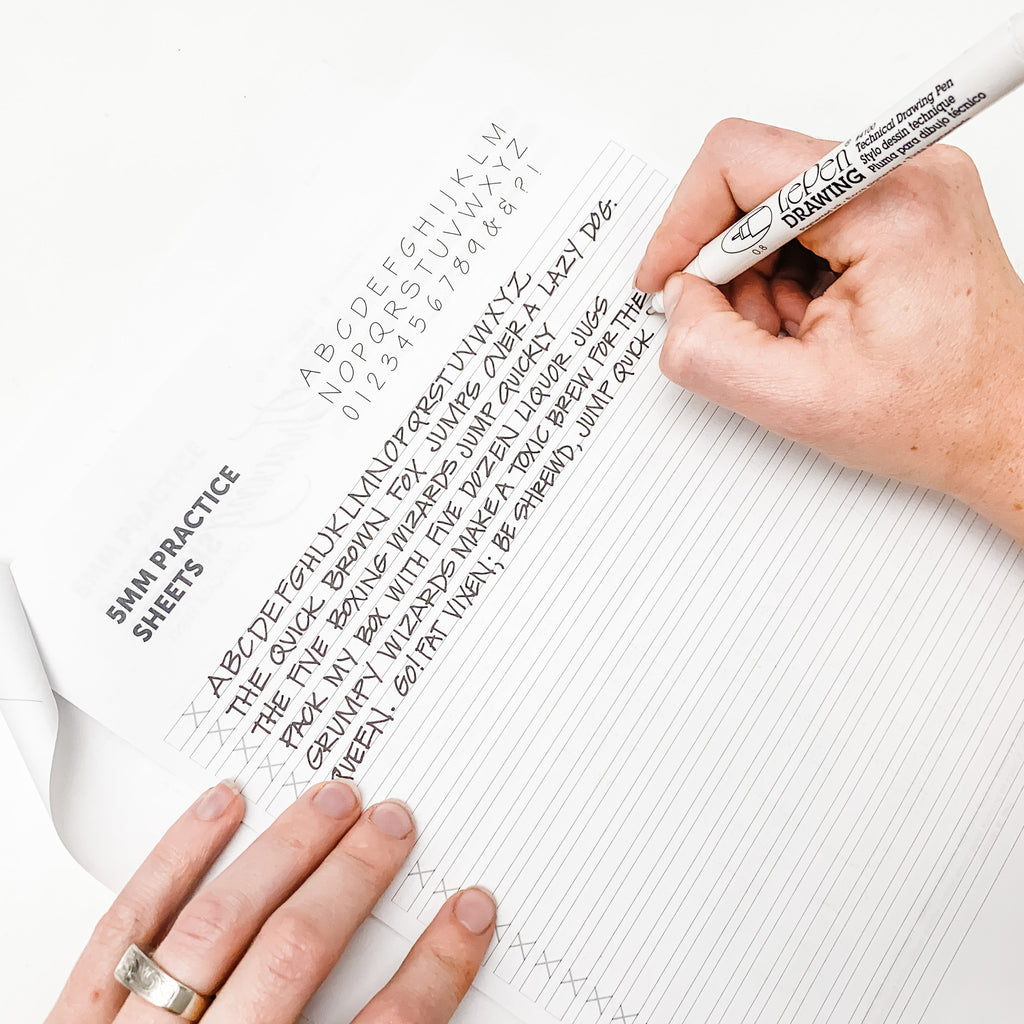 5MM PRACTICE
SHEETS
A B C D E F G H I J K L M
N O P Q R S T U V W X Y Z
0 1 2 3 4 5 6 7 8 9 & & P !
ABCDEFGHIJKLMNOPQRSTUVWXYZ
THE QUICK BROWN FOX JUMPS OVER A LAZY DOG.
THE FIVE BOXING WIZARDS JUMP QUICKLY
PACK MY BOX WITH FIVE DOZEN LIQUOR JUGS
GRUMPY WIZARDS MAKE A TOXIC BREW FOR THE
QUEEN. GO! FAT VIXEN; BE SHREWD, JUMP QUICK
LePen®
DRAWING
#4100
Technical Drawing Pen
Stylo dessin technique
Pluma para dibujo técnico
0.8